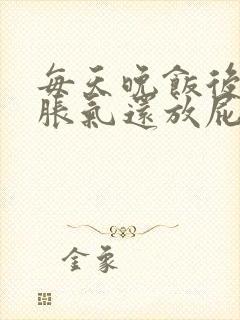 每天晚飯後
脹氣還放屁
金象